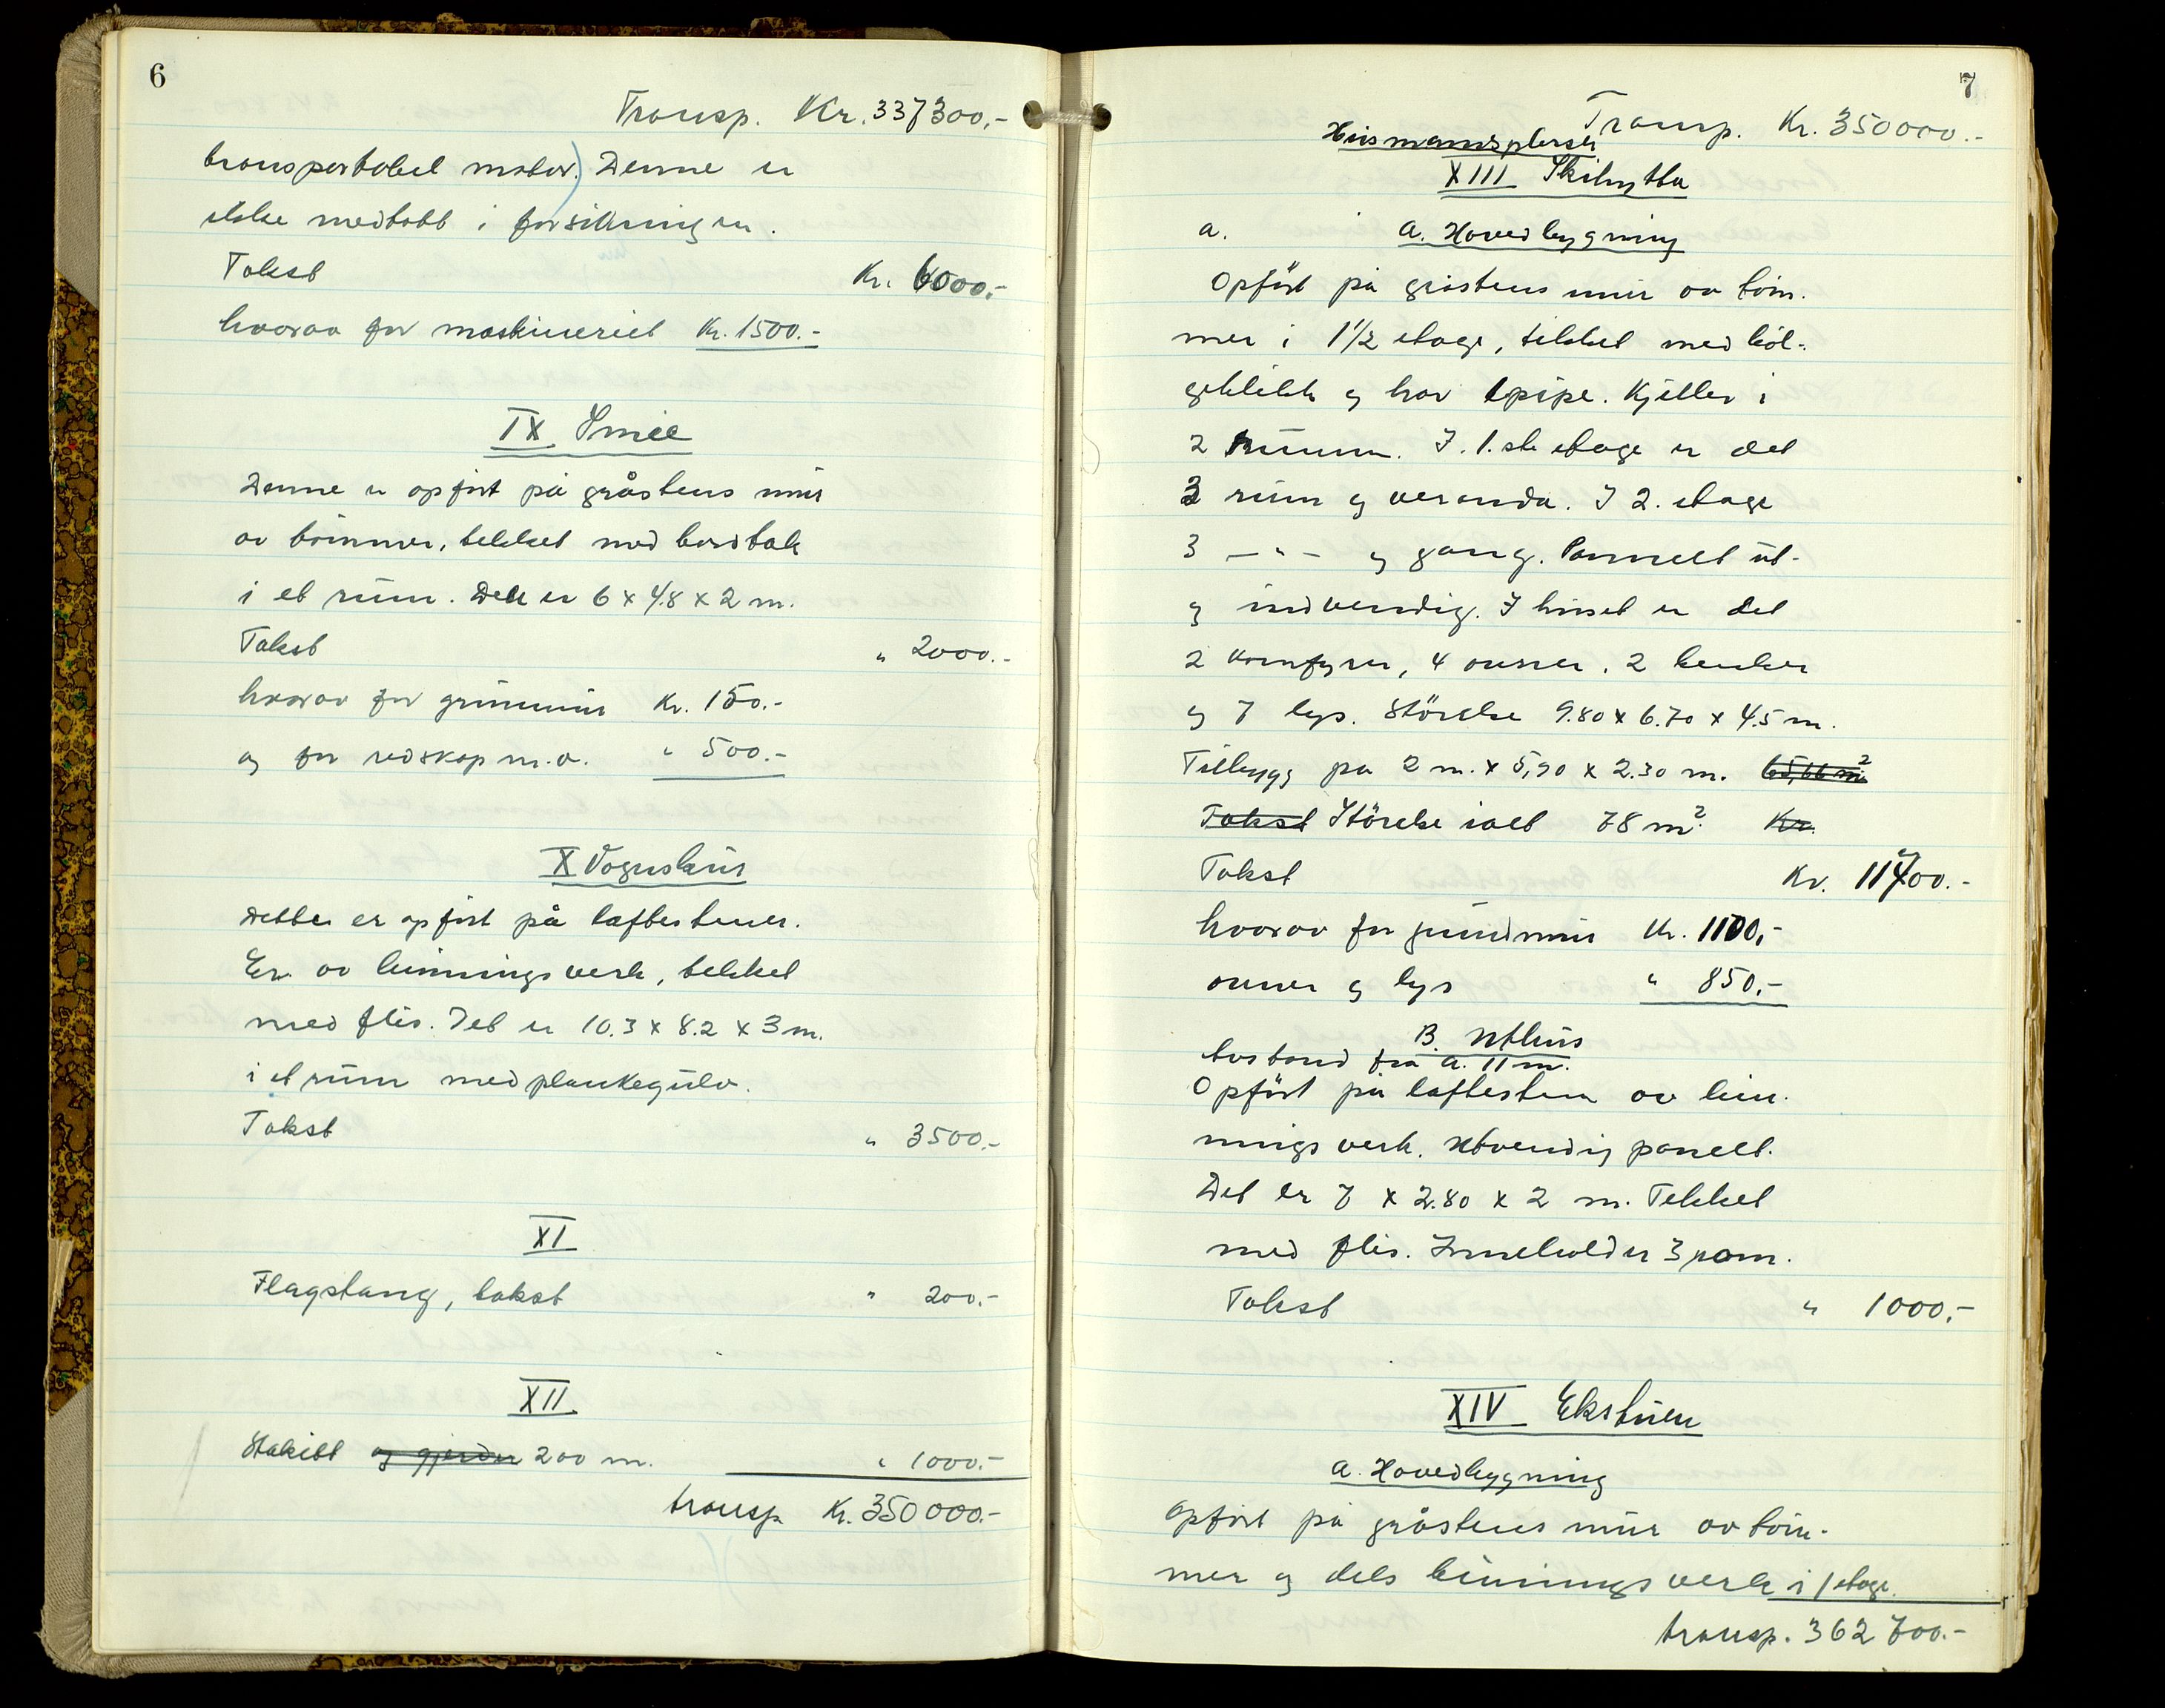 6
Transp. Kr. 337300.-
transportabel motor.) Denne er
ikke medtatt i forsikringen.
Takst Kr. 6000.-
hvorav for maskineriet Kr. 1500.-
IX Smie
Denne er opført på gråstens mur
av tømmer, tekket med bordtak
i et rum. Det er 6 x 4.8 x 2 m.
Takst " 2000.-
hvorav for grunnmur Kr. 150.-
og for redskap m.v. " 500.-
X Vognskur
Dette er opført på løftestener.
Er av binningsverk, tekket
med flis. Det er 10.3 x 8.2 x 3 m.
i et rum med plankegulv.
Takst " 3500.-
XI
Flagstang, takst " 200.-
XII
Stakitt og gjerder 200 m. " 1000.-
transp. Kr. 350000.-
7
Transp. Kr. 350000.-
Husmannsplasser
XIII Skihytta
a. A. Hovedbygning
Opført på gråstens mur av töm-
mer i 1 1/2 etage, tekket med böl-
geblikk og har 1 pipe. Kjeller i
2 rumm. I 1.ste etage er det
3 rum og veranda. I 2. etage
3 - " - og gang. Pannelt ut-
og indvendig. I huset er det
2 komfyrer, 4 ovner, 2 benker
og 7 lys. Störelse 9.80 x 6.70 x 4.5 m.
Tilbygg på 2 m. x 5,90 x 2.30 m. 65,66 m²
Takst Störelse ialt 78 m². Kr.
Takst Kr. 11700.-
hvorav for grundmur Kr. 1100,-
ovner og lys " 850.-
B. Uthus
Avstand fra A. 11 m.
Opført på løftesten av bin-
nings verk. Utvendig panelt.
Det er 7 x 2.80 x 2 m. Tekket
med flis. Inneholder 3 rom.
Takst " 1000.-
XIV Ekstuen
a. Hovedbygning
Opført på gråstens mur av töm-
mer og dels binnings verk i 1 etage.
transp. 362700.-